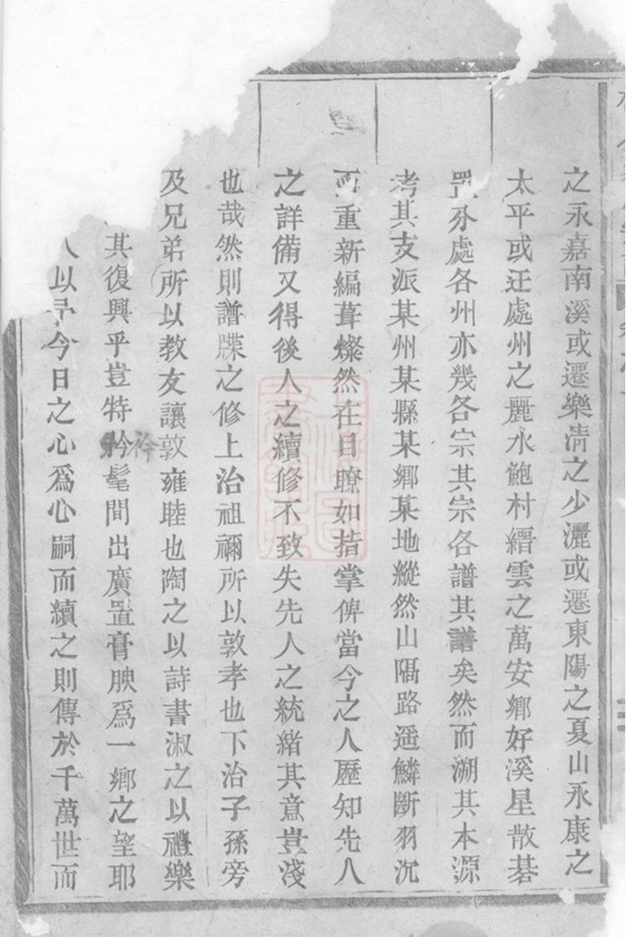 之永嘉南溪或遷樂清之少灑或遷東陽之夏山永康之
太平或迁處州之麗水鮑村縉雲之萬安鄉好溪星散碁
置分處各州亦幾各宗其宗各譜其譜矣然而溯其本源
考其支派某州某縣某鄉某地縱然山隔路遥鱗斷羽沉
而重新編葺燦然在目瞭如指掌俾當今之人歷知先人
之詳備又得後人之續修不致失先人之統緒其意豈淺
也哉然則譜牒之修上治祖禰所以敦孝也下治子孫旁
及兄弟所以教友讓敦雍睦也陶之以詩書淑之以禮樂
其復興乎豈特衿髦間出廣置膏腴爲一鄉之望耶
人以今日之心爲心嗣而續之則傳於千萬世而